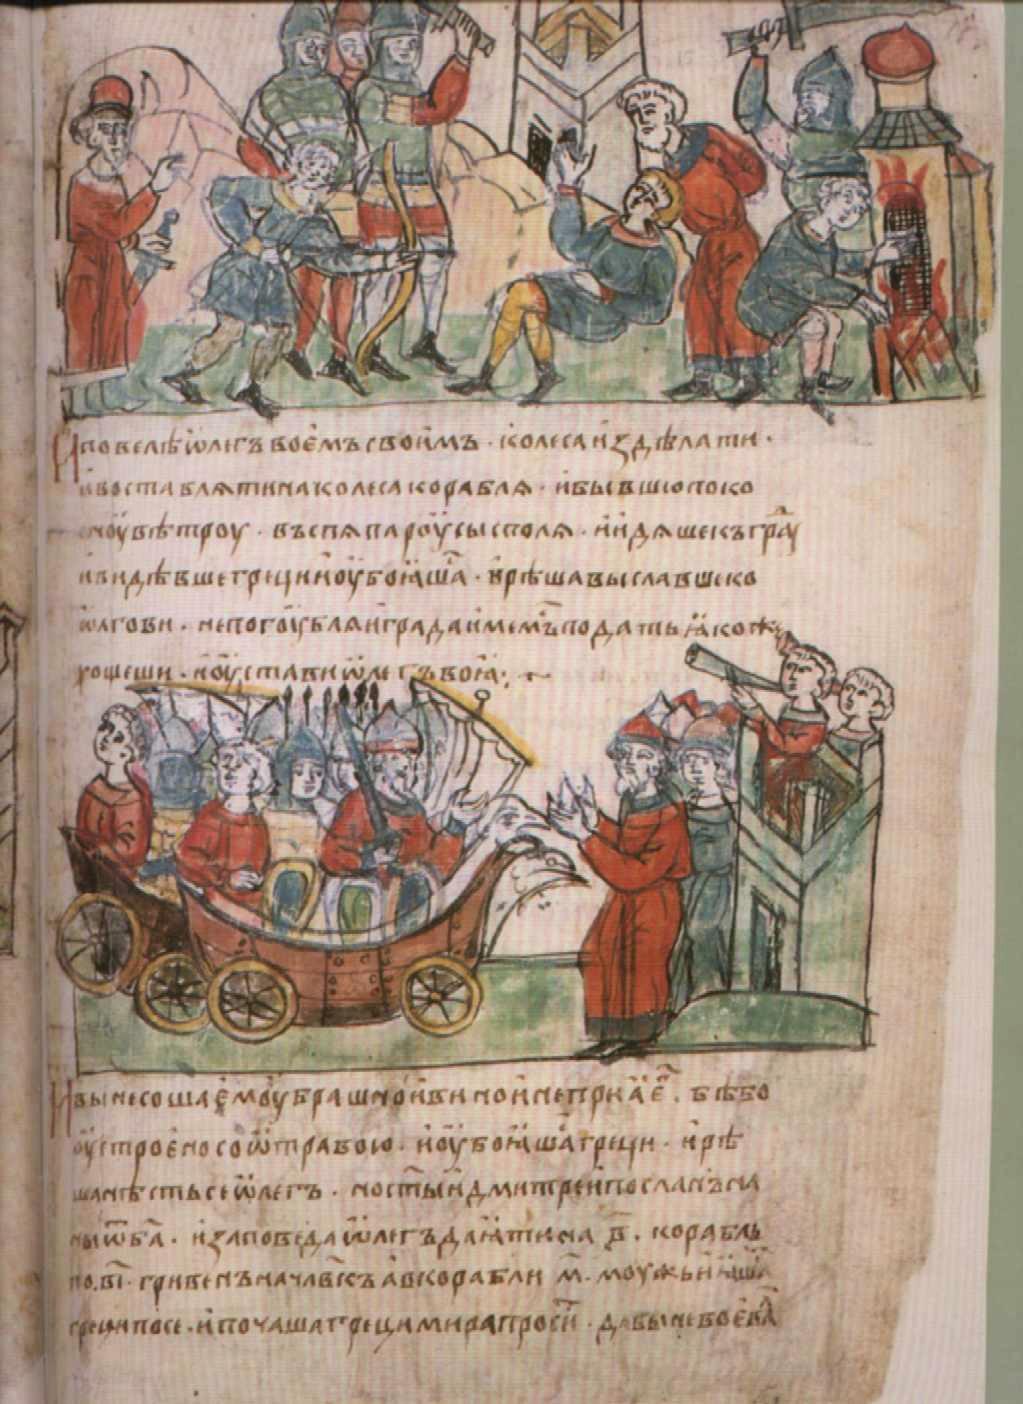 И повелѣ Ѡлегъ воемъ своимъ · колеса издѣлати ·
и воставляти на колеса корабля · и бывшю поко
сноу вѣтроу · въспя пароусы с поля · и идяше къ граⷣ
и видѣвше греци и оубоꙗшаⷭ · и рѣша выславше ко
Ѡлгови · не погоублꙗи града имемъ сѧ по дать ꙗкоже
хощеши · и оустави Ѡлегъ воꙗ ·
И вынесоша емоу брашно и вино и не приꙗ еⷢ · бѣ бо
оустроено со ѿравою · и оубоꙗшаⷭ греци · и рѣ
ша нѣсть се Ѡлегъ · но стыи Дмитреи посланъ на
ны ѿ ба · и заповеда Ѡлегъ даꙗти на в҃ · корабль
по · ві · гривенъ на члвкъ а в корабли м҃ · моужь и ꙗшаⷭ
греци по се · и почаша греци мира просіти · дабы не воевал